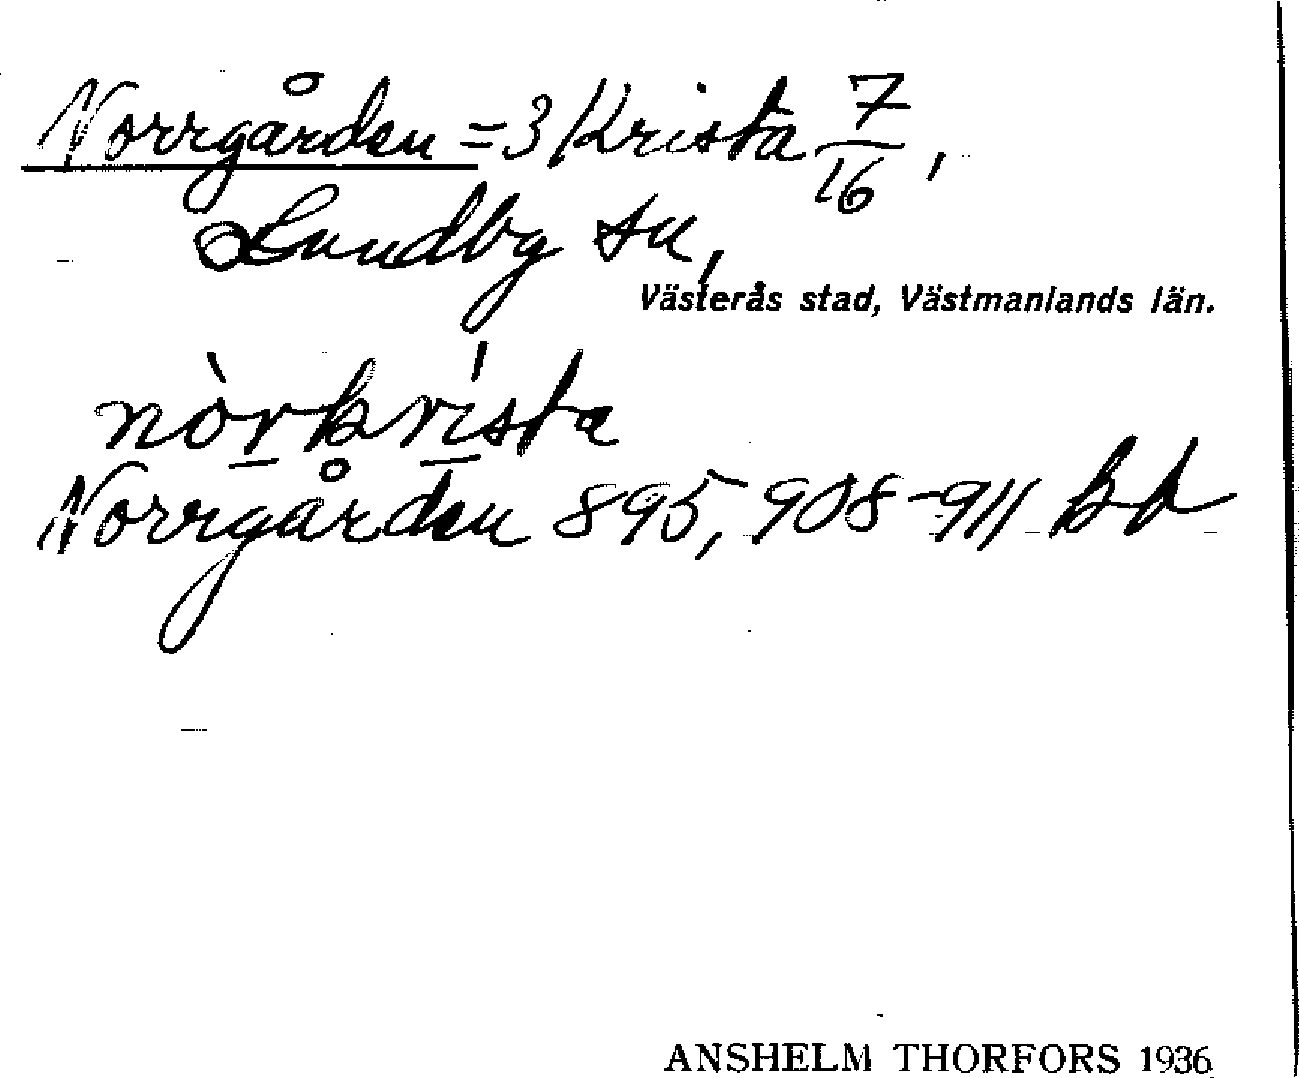 Norrgården = 3 Krista 7/16,
Lundby sn,
Västerås stad, Västmanlands län.
nòrkrísta
Norrgården 895, 908-911 Bd
ANSHELM THORFORS 1936